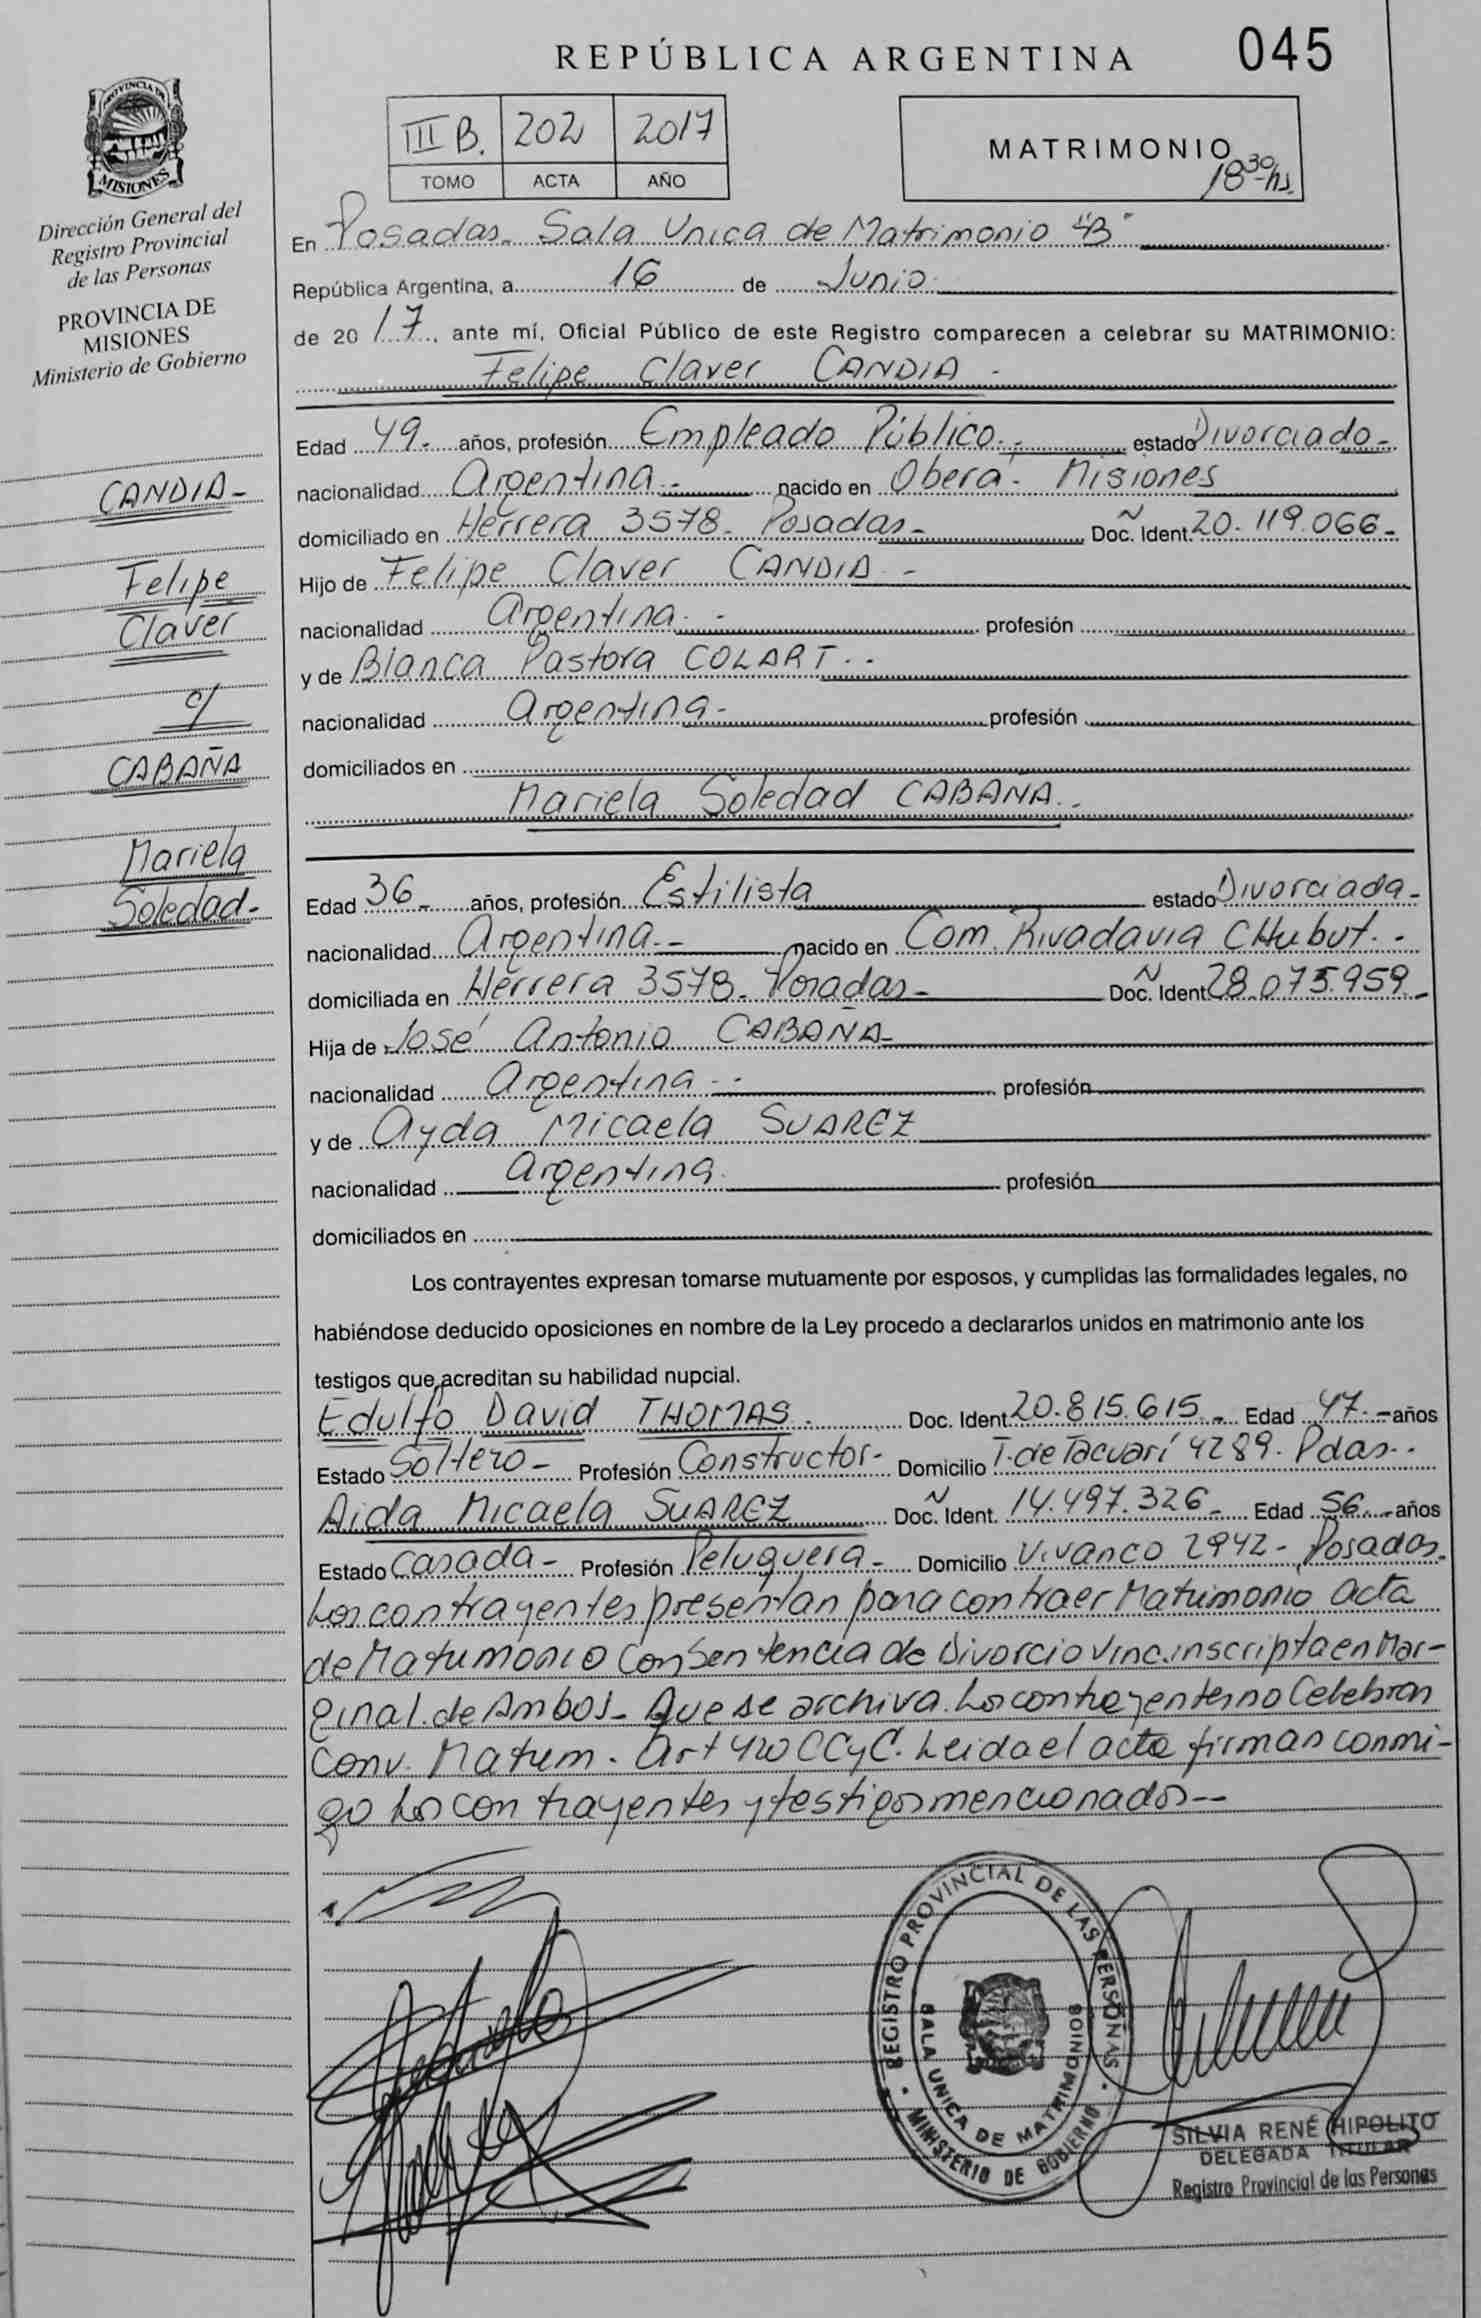 REPÚBLICA ARGENTINA
045
III B. 202 2017
TOMO ACTA AÑO
MATRIMONIO
18 30 hs.
PROVINCIA DE
MISIONES
Dirección General del
Registro Provincial
de las Personas
PROVINCIA DE
MISIONES
Ministerio de Gobierno
CANDIA-
Felipe
Claver
c/
CABAÑA
Mariela
Soledad-
En Posadas. Sala Unica de Matrimonio "B"
República Argentina, a 16 de Junio
de 20 17, ante mí, Oficial Público de este Registro comparecen a celebrar su MATRIMONIO:
Felipe Claver CANDIA -
Edad 49- años, profesión Empleado Público.- estado Divorciado-
nacionalidad Argentina.- nacido en Oberá- Misiones
domiciliado en Herrera 3578- Posadas- Doc. Ident. 20.119.066-
Hijo de Felipe Claver CANDIA.-
nacionalidad Argentina.- profesión
y de Blanca Pastora COLART..
nacionalidad Argentina- profesión
domiciliados en
Mariela Soledad CABAÑA..
Edad 36- años, profesión Estilista estado Divorciada-
nacionalidad Argentina.- nacido en Com. Rivadavia CHubut.-
domiciliada en Herrera 3578- Posadas- Doc. Ident. 28.075.959-
Hija de José Antonio CABAÑA-
nacionalidad Argentina.- profesión
y de Ayda Micaela SUAREZ
nacionalidad Argentina. profesión
domiciliados en
Los contrayentes expresan tomarse mutuamente por esposos, y cumplidas las formalidades legales, no
habiéndose deducido oposiciones en nombre de la Ley procedo a declararlos unidos en matrimonio ante los
testigos que acreditan su habilidad nupcial.
Edulfo David THOMAS. Doc. Ident. 20.815.615.- Edad 47.- años
Estado Soltero- Profesión Constructor- Domicilio T. de Tacuarí 4289. Pdas..
Aida Micaela SUAREZ Doc. Ident. 14.497.326- Edad 56.- años
Estado Casada- Profesión Peluquera- Domicilio Vivanco 2942- Posadas.
Los contrayentes presentan para contraer Matrimonio acta
de Matrimonio con Sentencia de Divorcio Vinc. inscripta en Mar-
ginal. de Ambos- Que se archiva. Los contrayentes no Celebran
Conv. Matrim. Art 420 CCyC. Leida el acta firman conmi-
go los contrayentes y testigos mencionados--
REGISTRO PROVINCIAL DE LAS PERSONAS
SALA UNICA DE MATRIMONIOS
MINISTERIO DE GOBIERNO
SILVIA RENÉ HIPOLITO
DELEGADA TITULAR
Registro Provincial de las Personas